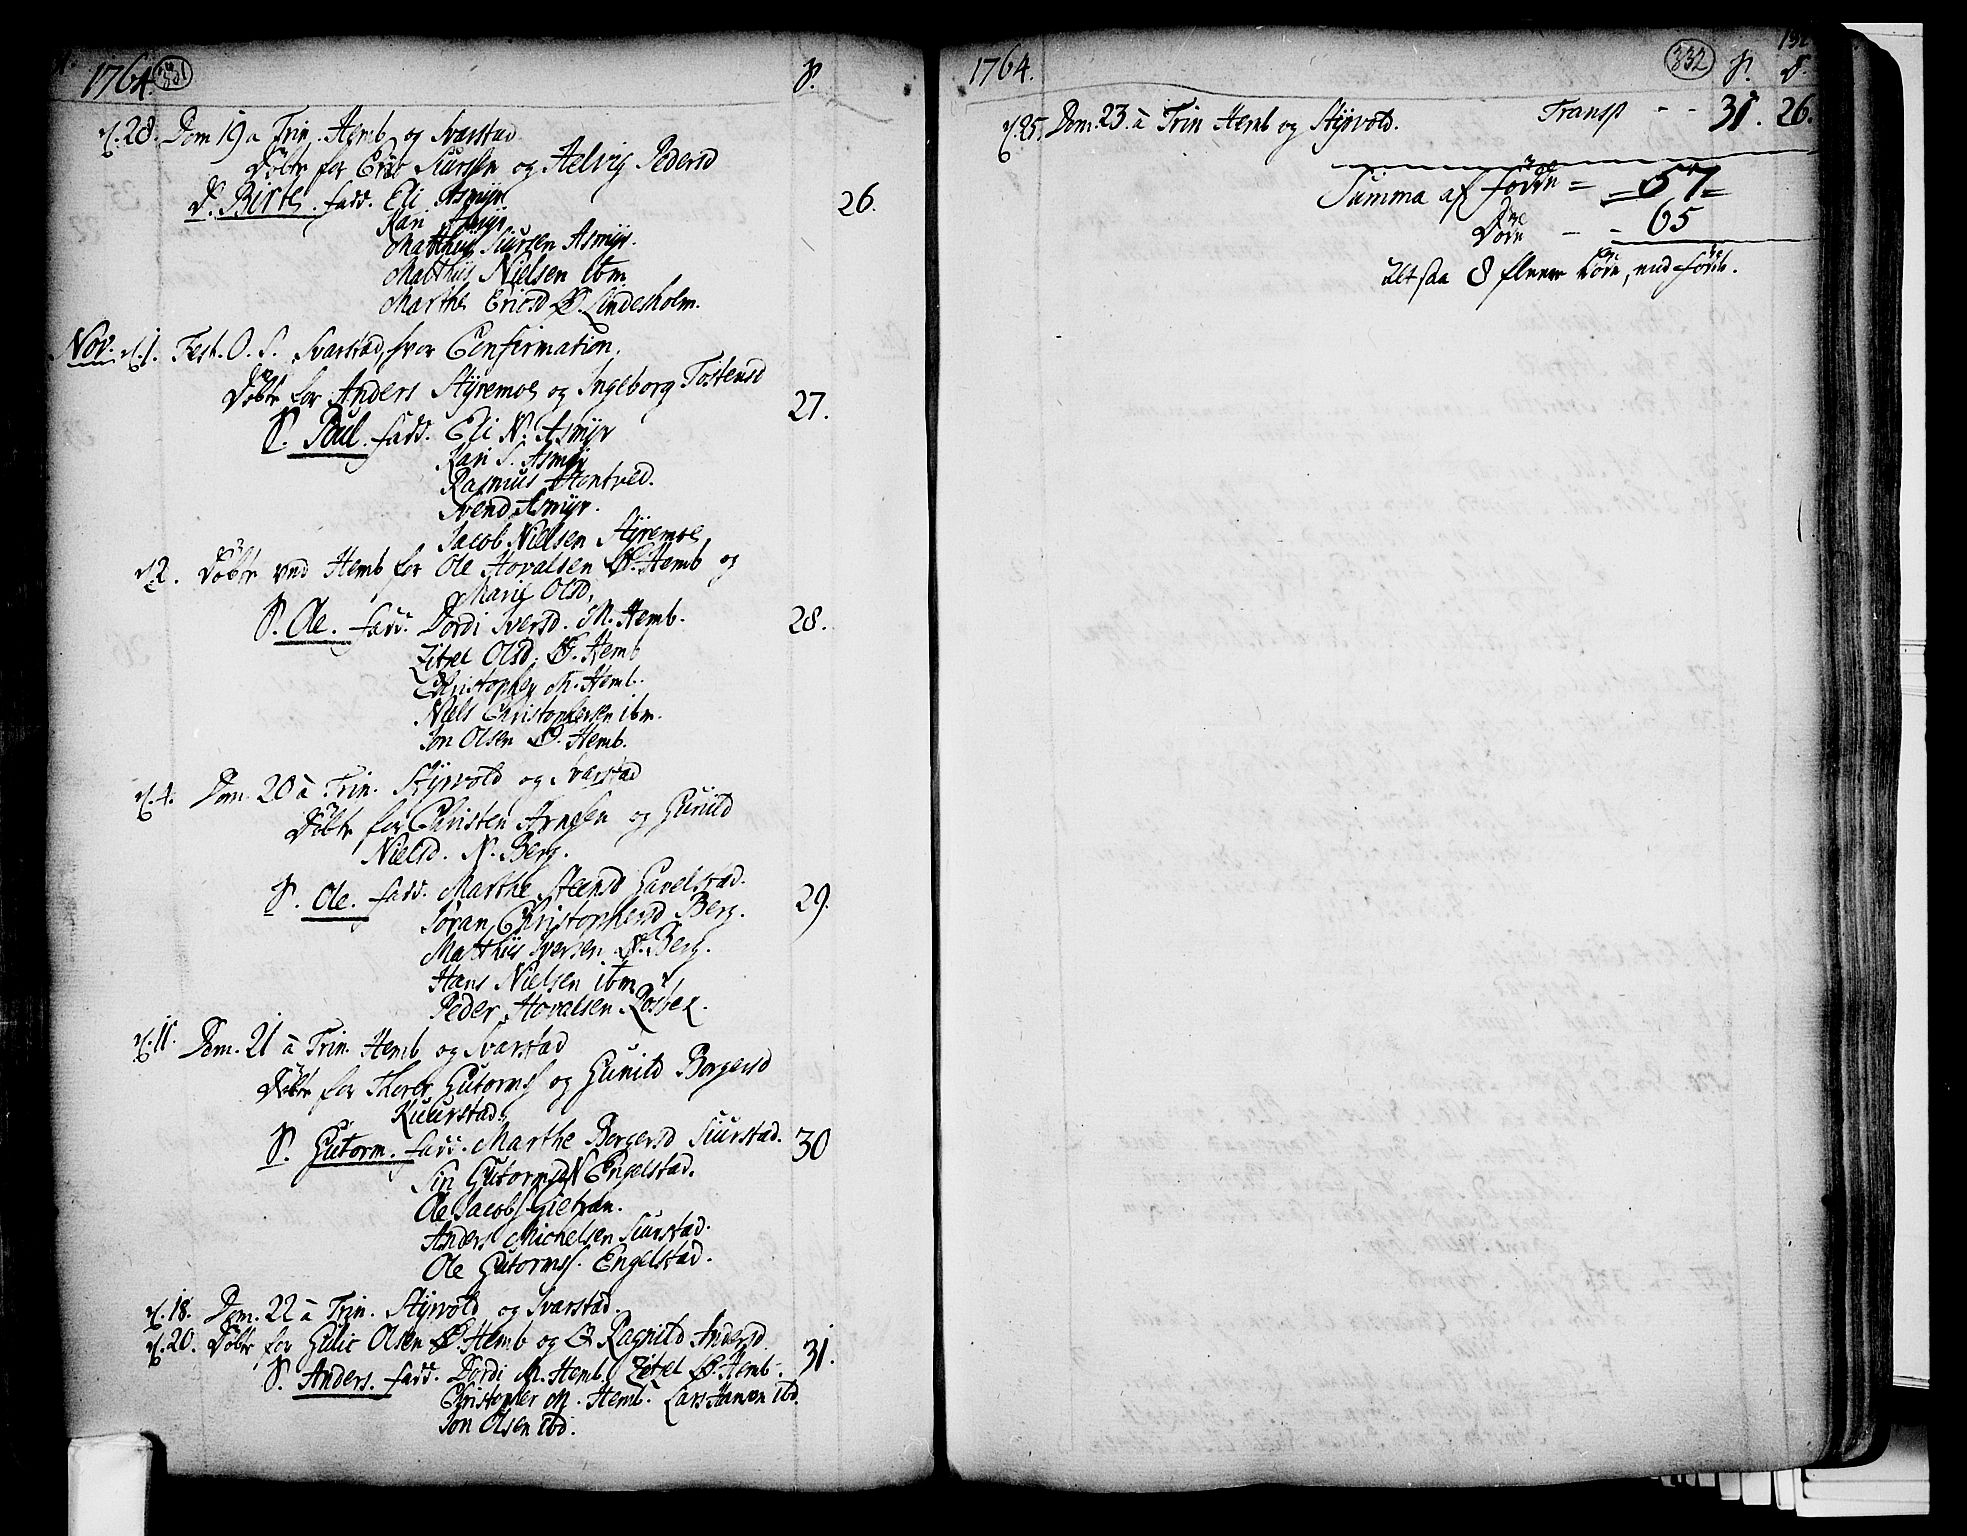 1764. 331 S.
d. 28. Dom 19 a Trin. Hemb og Svarstad
Döbte for Eric Siursen og Helvig Pedersd
D. Birte. fadd. Eli Asmyr 26.
Kari Asmyr
Matthiis Siursen Asmyr.
Matthiis Nielsen ibm
Marthe Ericsd Ø. Lindesholm.
Nov. d. 1. Fest. O. S. Svarstad, hvor Confirmation.
Döbte for Anders Styremoe og Ingeborg Tostensd
S. Poul. fadd. Eli N. Asmyr 27.
Kari S. Asmyr
Rasmus Hontved.
Svend Asmyr.
Jacob Nielsen Styremoe
d. 2. Döbte ved Hemb for Ole Hovalsen Ø. Hemb og
Marie Olsd,
S. Ole. fadd. Dordi Iversd. M. Hemb. 28.
Zitzel Olsd. Ø. Hemb
Christopher M. Hemb.
Niels Christophersen ibm.
Jon Olsen Ø. Hemb.
d. 4. Dom. 20 a Trin. Styrvold og Svarstad
Döbte for Christen Arnesen og Gunild
Nielsd. N. Berg.
S. Ole. fadd. Marthe Steensd Gavelstad. 29.
Söran Christophersd Berg.
Matthiis Iversen Ø. Berg.
Hans Nielsen ibm
Peder Hovalsen
d. 11. Dom. 21 a Trin. Hemb og Svarstad
Döbte for Thorer Gutormss og Gunild Borgersd
S. Gutorm. fadd. Marthe Borgersd Siurstad. 30
Siri Gutormsd N Engelstad.
Ole Jacobss
Anders Michelsen Siurstad.
Ole Gutormss. Engelstad.
d. 18. Dom. 22 a Trin. Styrvold og Svarstad.
d. 20. Döbte for Gulic Olsen Ø. Hemb og Ragnild Andersd.
S. Anders. fadd. Dordi M. Hemb. Zitzel Ø. Hemb. 31.
Christopher M. Hemb. Lars Hansen ibd.
Jon Olsen ibd.
1764. 332 S. D.
d. 25. Dom. 23 a Trin Hemb og Styrvold. Transp - - 31. 26.
Summa af födde = = 57 =
Döde - - 65
Altsaa 8 fleere döde, end födde.